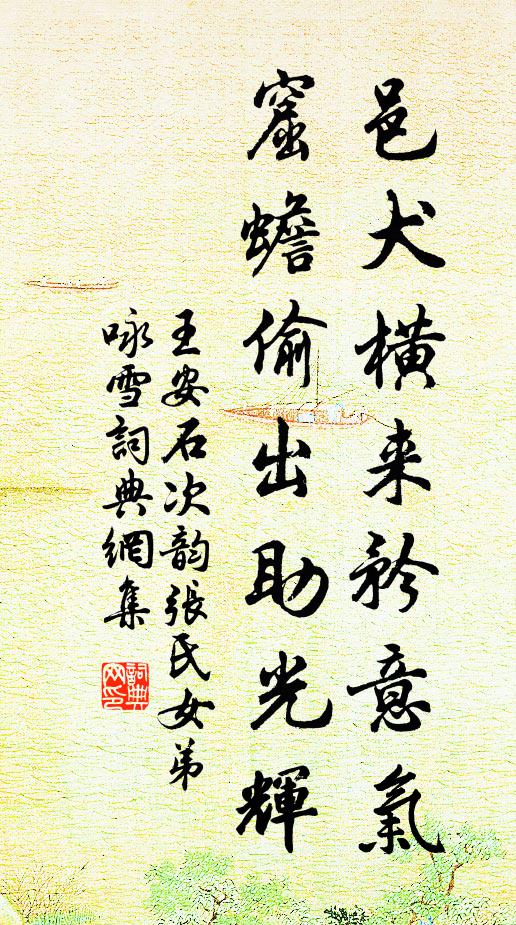 邑犬橫来矜意氣
窟蟾偷出助光輝
王安石次韵張氏女弟
咏雪詞典網集
詞典网印